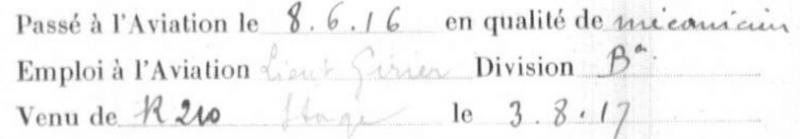 Passé à l'Aviation le 8.6.16 en qualité de mécanicien
Emploi à l'Aviation Lieut Division Bª.
Venu de R 210 Stage le 3.8.17